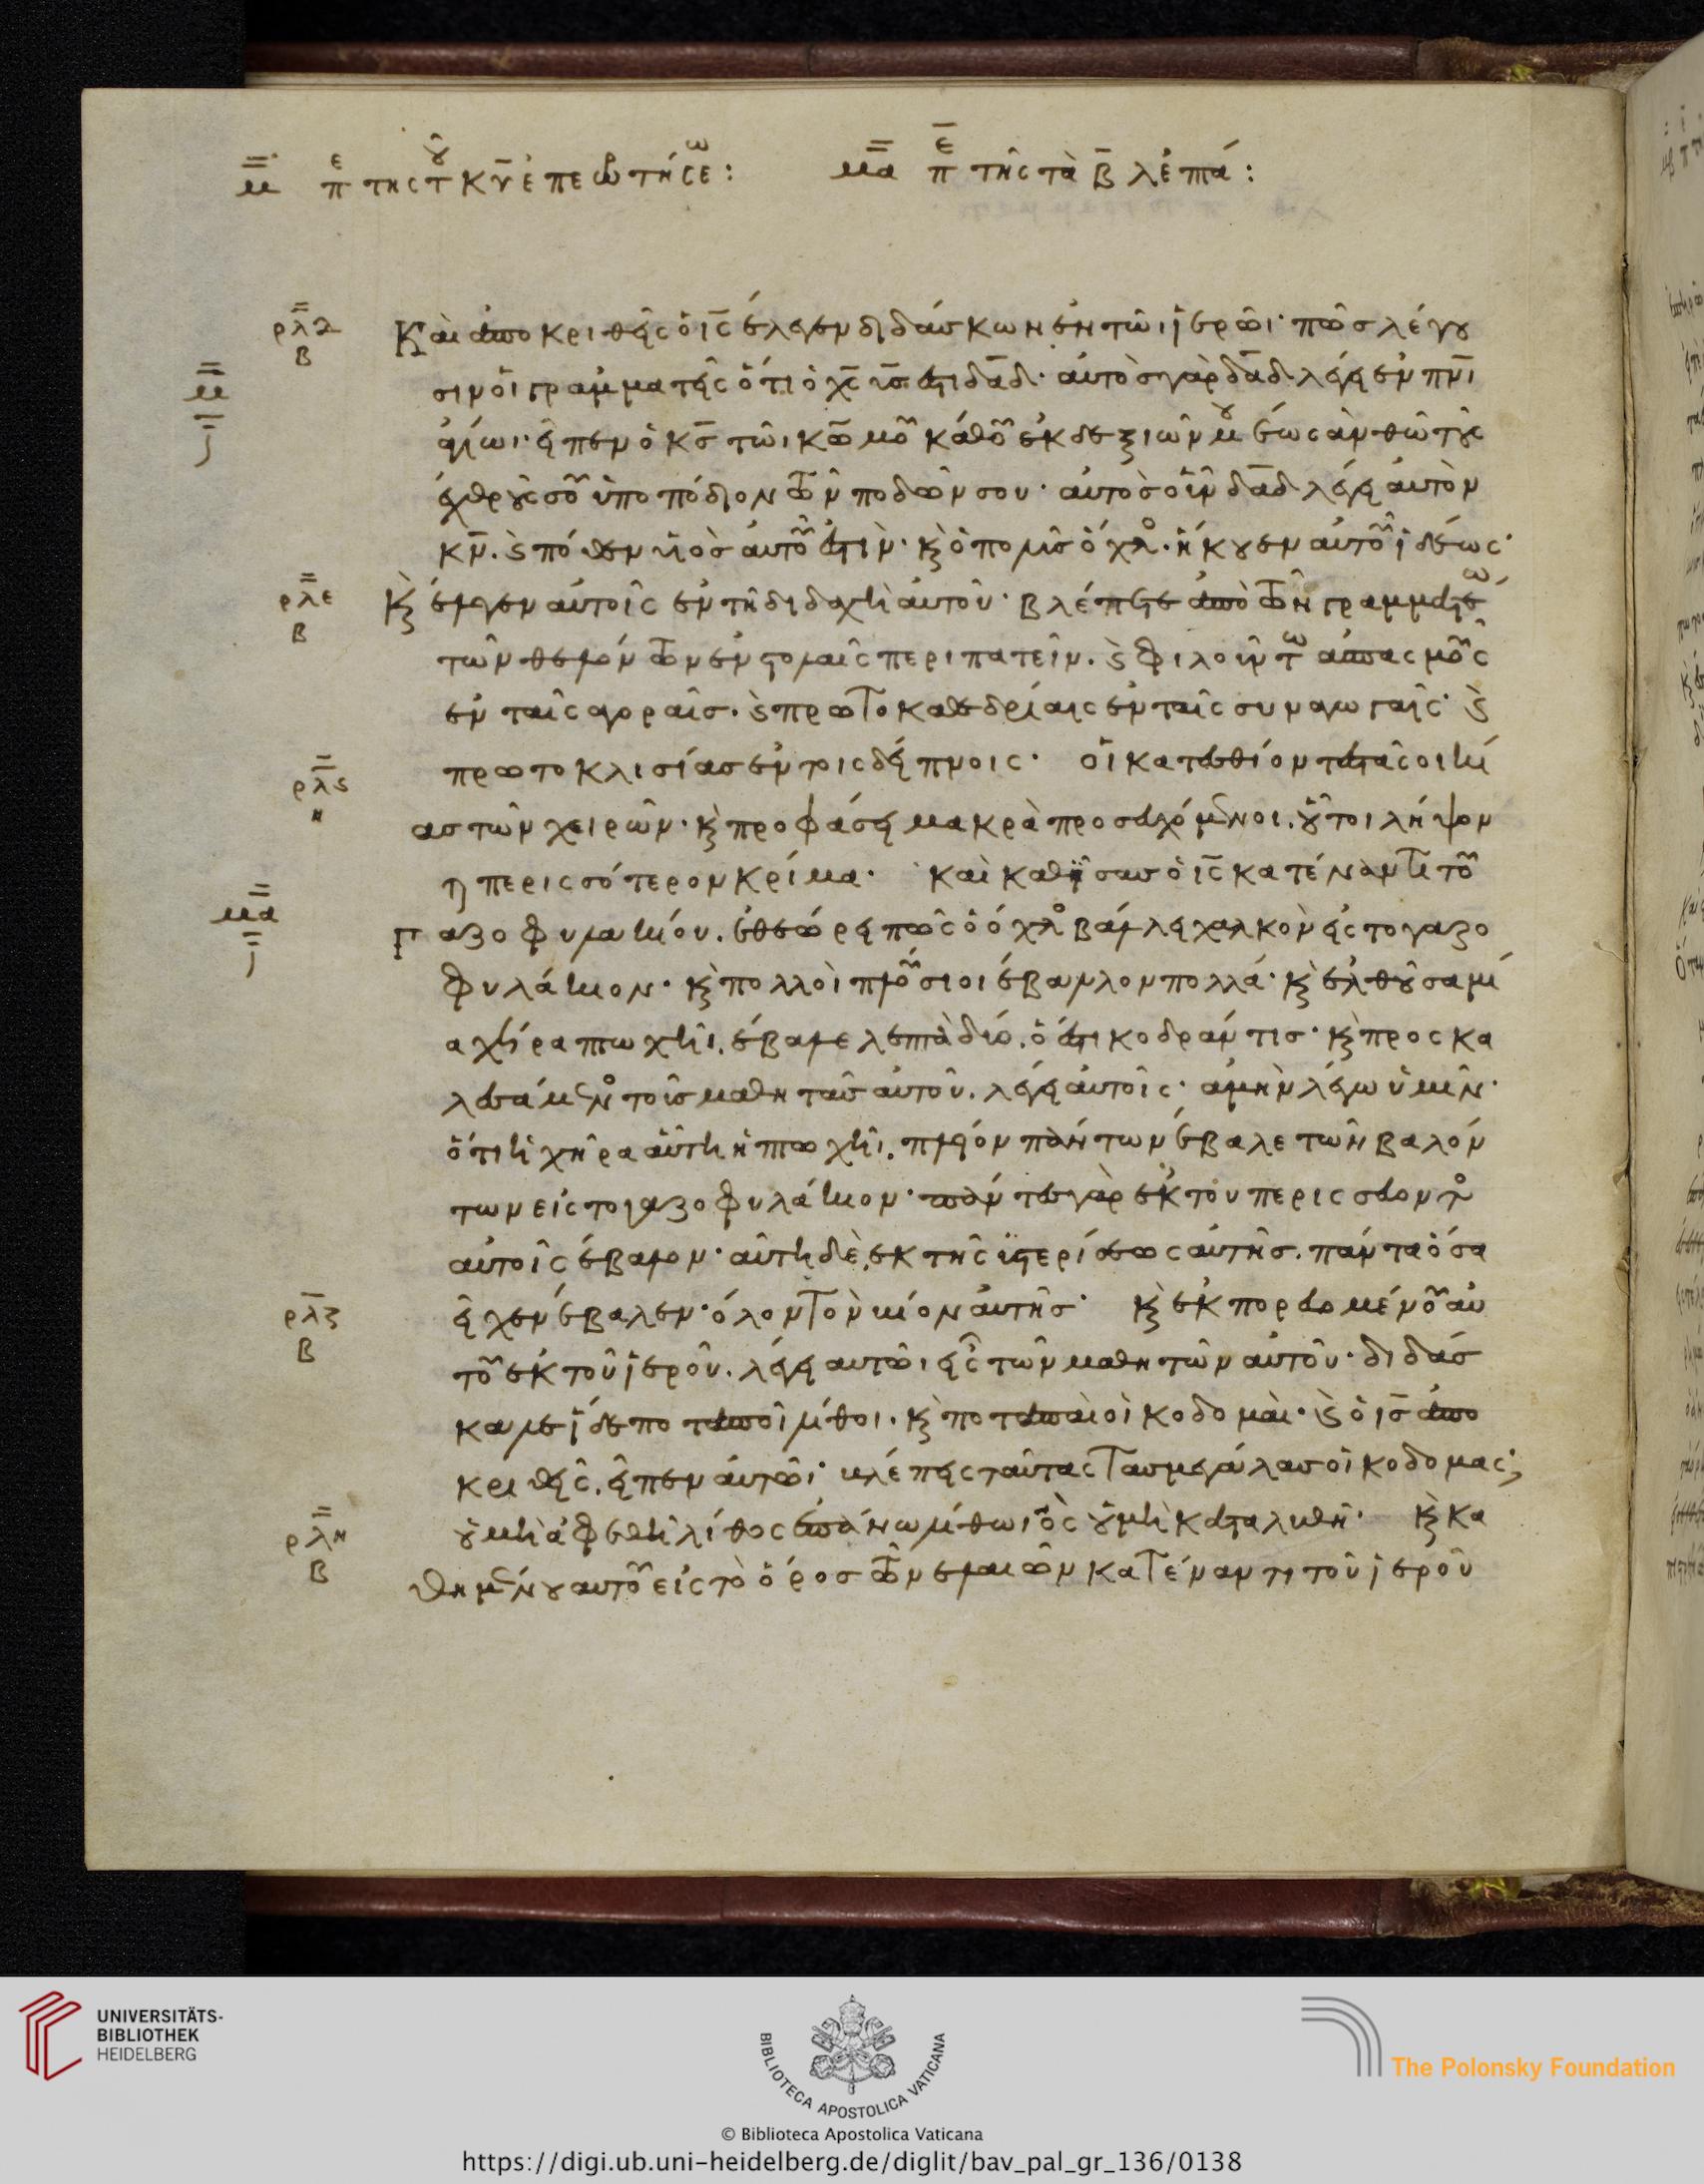 μ̿ πε τῆς τοῦ κῡ ἐπερωτήσεω:   μ̿α πε τῆς τὰ β̄ λεπτά:
ρλδ
β
Καὶ ἀποκριθεὶς ὁ ις̄ ἔλεγεν διδάσκων ἐν τῶι ἱερῶι· πῶς λέγου
μ̿
σιν οἱ γραμματεῖς ὅτι ὁ χς̄ υς̄ ἐστι δᾱδ· αὐτὸς γὰρ δᾱδ λέγει ἐν πνῑ
ἁγίωι· εἶπεν ὁ κς̄ τῶι κω̄ μου κάθου ἐκ δεξιῶν μου ἕως ἂν θῶ τοὺς
ἐχθρούς σου ὑποπόδιον τῶν ποδῶν σου· αὐτὸς οὖν δᾱδ λέγει αὐτὸν
κν̄. καὶ πόθεν υἱὸς αὐτοῦ ἐστὶν· καὶ ὁ πολὺς ὄχλος ἤκουεν αὐτοῦ ἡδέως·
ρλε
β
καὶ ἔλεγεν αὐτοῖς ἐν τῆ διδαχῆ αὐτοῦ· βλέπετε ἀπὸ τῶν γραμματέω
τῶν θελόντων ἐν στολαῖς περιπατεῖν. καὶ φιλούντων ἀσπασμοὺς
ἐν ταῖς ἀγοραῖς· καὶ πρωτοκαθεδρίαις ἐν ταῖς συναγωγαῖς· καὶ
ρλς
η
πρωτοκλισίας ἐν τοις δείπνοις· οἱ κατεσθίοντες τὰς οικί
ας τῶν χειρῶν· καὶ προφάσει μακρὰ προσευχόμενοι. οὗτοι λήψον
τ περισσότερον κρίμα· καὶ καθήσας ὁ ις̄ κατέναντι τοῦ
μ̿α
γαζοφυλακίου. ἐθεώρει πῶς ὁ ὄχλος βάλλει χαλκὸν εἰς το γαζο
φυλάκιον· καὶ πολλοὶ πλούσιοι ἔβαλλον πολλά· καὶ ἐλθοῦσα μί
α χήρα πτωχὴ. ἔβαλε λεπτὰ δύο. ὅ ἐστι κοδράντις· καὶ προσκα
λεσάμενος τοὺς μαθητὰς αὐτοῦ. λέγει αὐτοῖς· ἀμὴν λέγω ὑμῖν·
ὅτι ἡ χῆρα αὕτη ἡ πτωχὴ. πλεῖον πάντων ἔβαλε τῶν βαλόν
των εἰς το γαζοφυλάκιον· πάντες γὰρ ἐκ του περισσεύοντος
αὐτοῖς ἔβαλον· αὕτη δὲ ἐκ τῆς ὑστερίσεως αὐτῆς. πάντα ὅσα
ρλζ
β
εἶχεν ἔβαλεν· ὅλον τὸν βίον αὐτῆς· καὶ ἐκπορευομένου αὐ
τοῦ ἐκ τοῦ ἱεροῦ. λέγει αυτῶι εἷς τῶν μαθητῶν αὐτοῦ· διδάσ
καλε ἴδε ποταποὶ λίθοι. καὶ ποταπαὶ οἰκοδομαὶ· καὶ ὁ ις̄ ἀπο
κριθεὶς. εἶπεν αὐτῶι· βλέπεις ταύτας τας μεγάλας οἰκοδομας;
ρλη
β
οὐ μὴ ἀφεθῆ λίθος ἐπάνω λίθωι ὃς οὐ μὴ καταλυθῆ· καὶ κα
θημένου αυτοῦ εἰς τὸ ὄρος τῶν ἐλαιῶν κατέναντι τοῦ ἱεροῦ
UNIVERSITÄTS-
BIBLIOTHEK
HEIDELBERG
BIBLIOTECA APOSTOLICA VATICANA
The Polonsky Foundation
© Biblioteca Apostolica Vaticana
https://digi.ub.uni-heidelberg.de/diglit/bav_pal_gr_136/0138